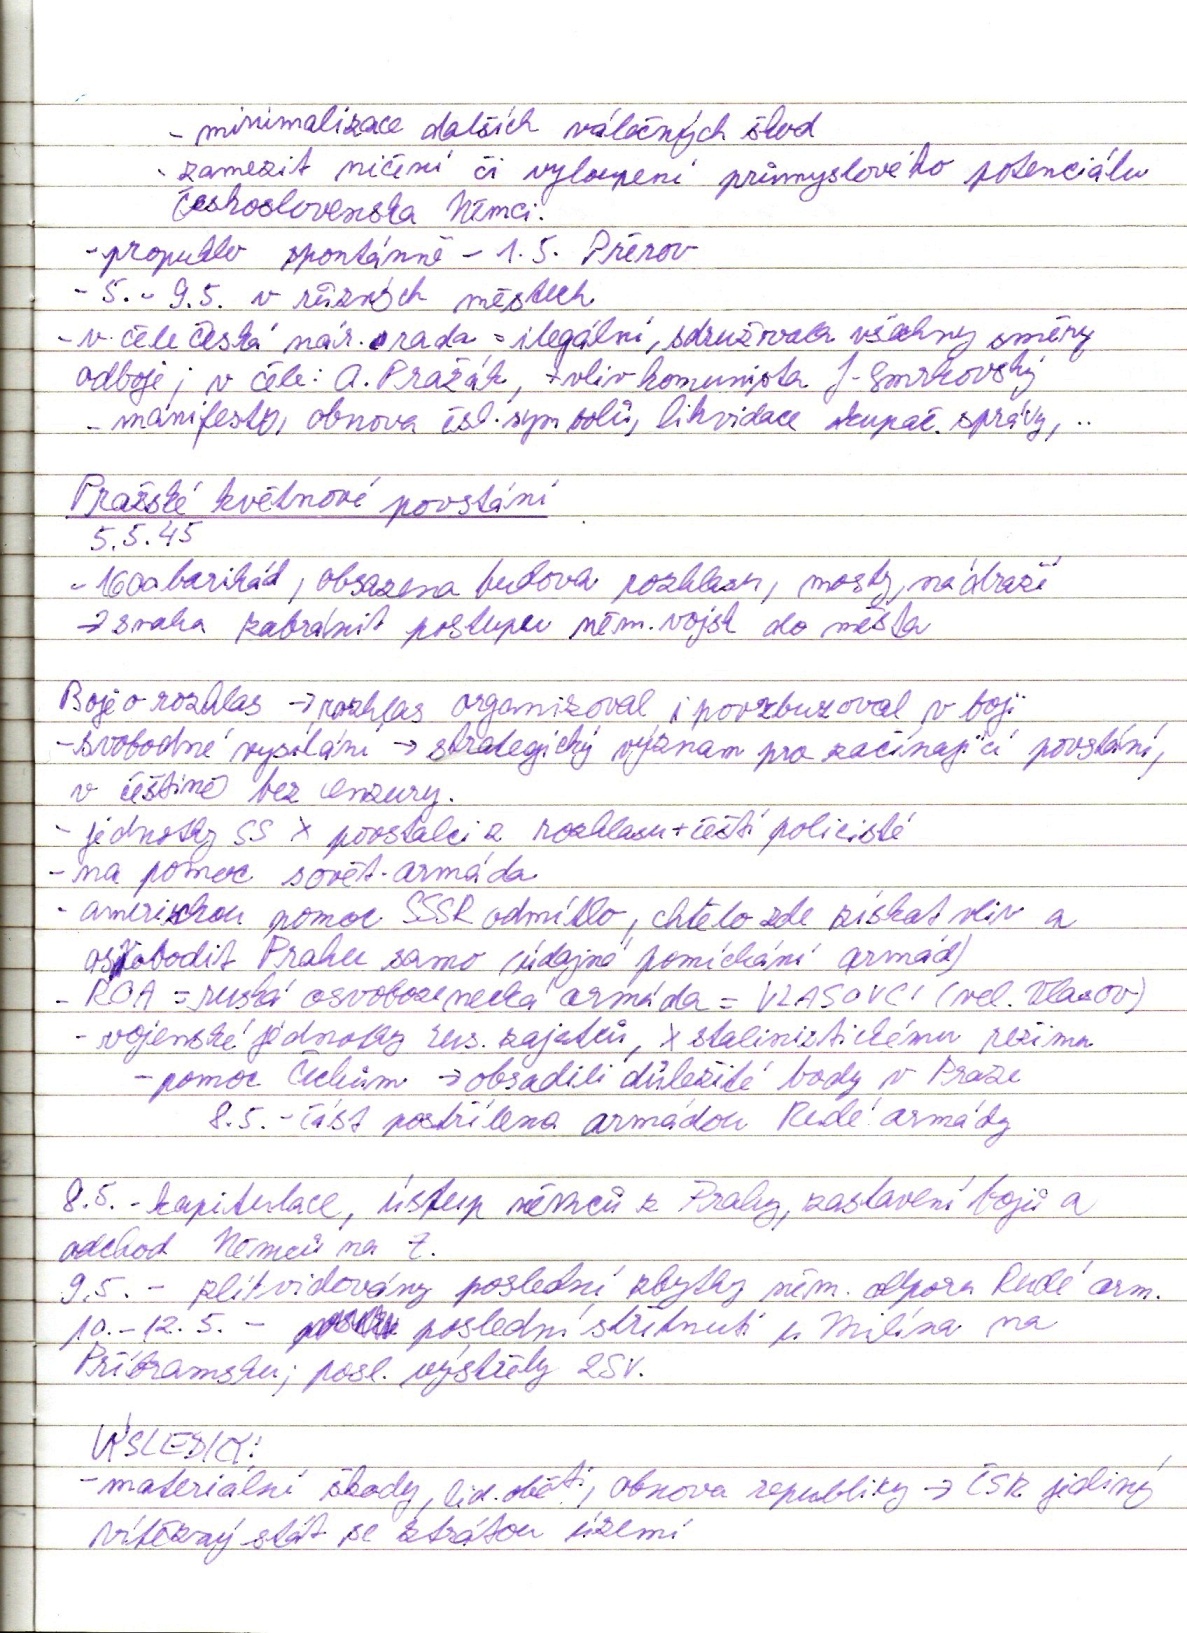 - minimalizace dalších válečných škod
- zamezit ničení či vyloupení průmyslového potenciálu
Československa Němci.
- propuklo spontánně - 1.5. Přerov
- 5. - 9.5. v různých městech
- v čele česká nár. rada = ilegální, sdružovala všechny směry
odboje; v čele: A. Pražák, + vliv komunista J. Smrkovský
- manifesty, obnova čsl. symbolů, likvidace okupač. správy, ..
Pražské květnové povstání
5.5.45
- 1600 barikád, obsazena budova rozhlasu, mosty, nádraží
→ snaha zabránit postupu něm. vojsk do města
Boje o rozhlas → rozhlas organizoval i povzbuzoval v boji
- svobodné vysílání → strategický význam pro začínající povstání,
v češtině bez cenzury.
- jednotky SS x povstalci z rozhlasu + čeští policisté
- na pomoc sovět. armáda
- americkou pomoc SSSR odmítlo, chtělo zde získat vliv a
osvobodit Prahu samo (údajné pomíchání armád)
- ROA = ruská osvobozenecká armáda = VLASOVCI (vel. Vlasov)
- vojenské jednotky rus. zajatců, x stalinistickému režimu
- pomoc Čechům → obsadili důležité body v Praze
8.5. - část postřílena armádou Rudé armády
8.5. - kapitulace, ústup němců z Prahy, zastavení bojů a
odchod Němců na Z.
9.5. - zlikvidovány poslední zbytky něm. odporu Rudé arm.
10. - 12.5. - poslední střetnutí u Milína na
Příbramsku; posl. výstřely 2SV.
VÝSLEDKY:
- materiální škody, lid. oběti, obnova republiky → ČSR jediný
vítězný stát se ztrátou území